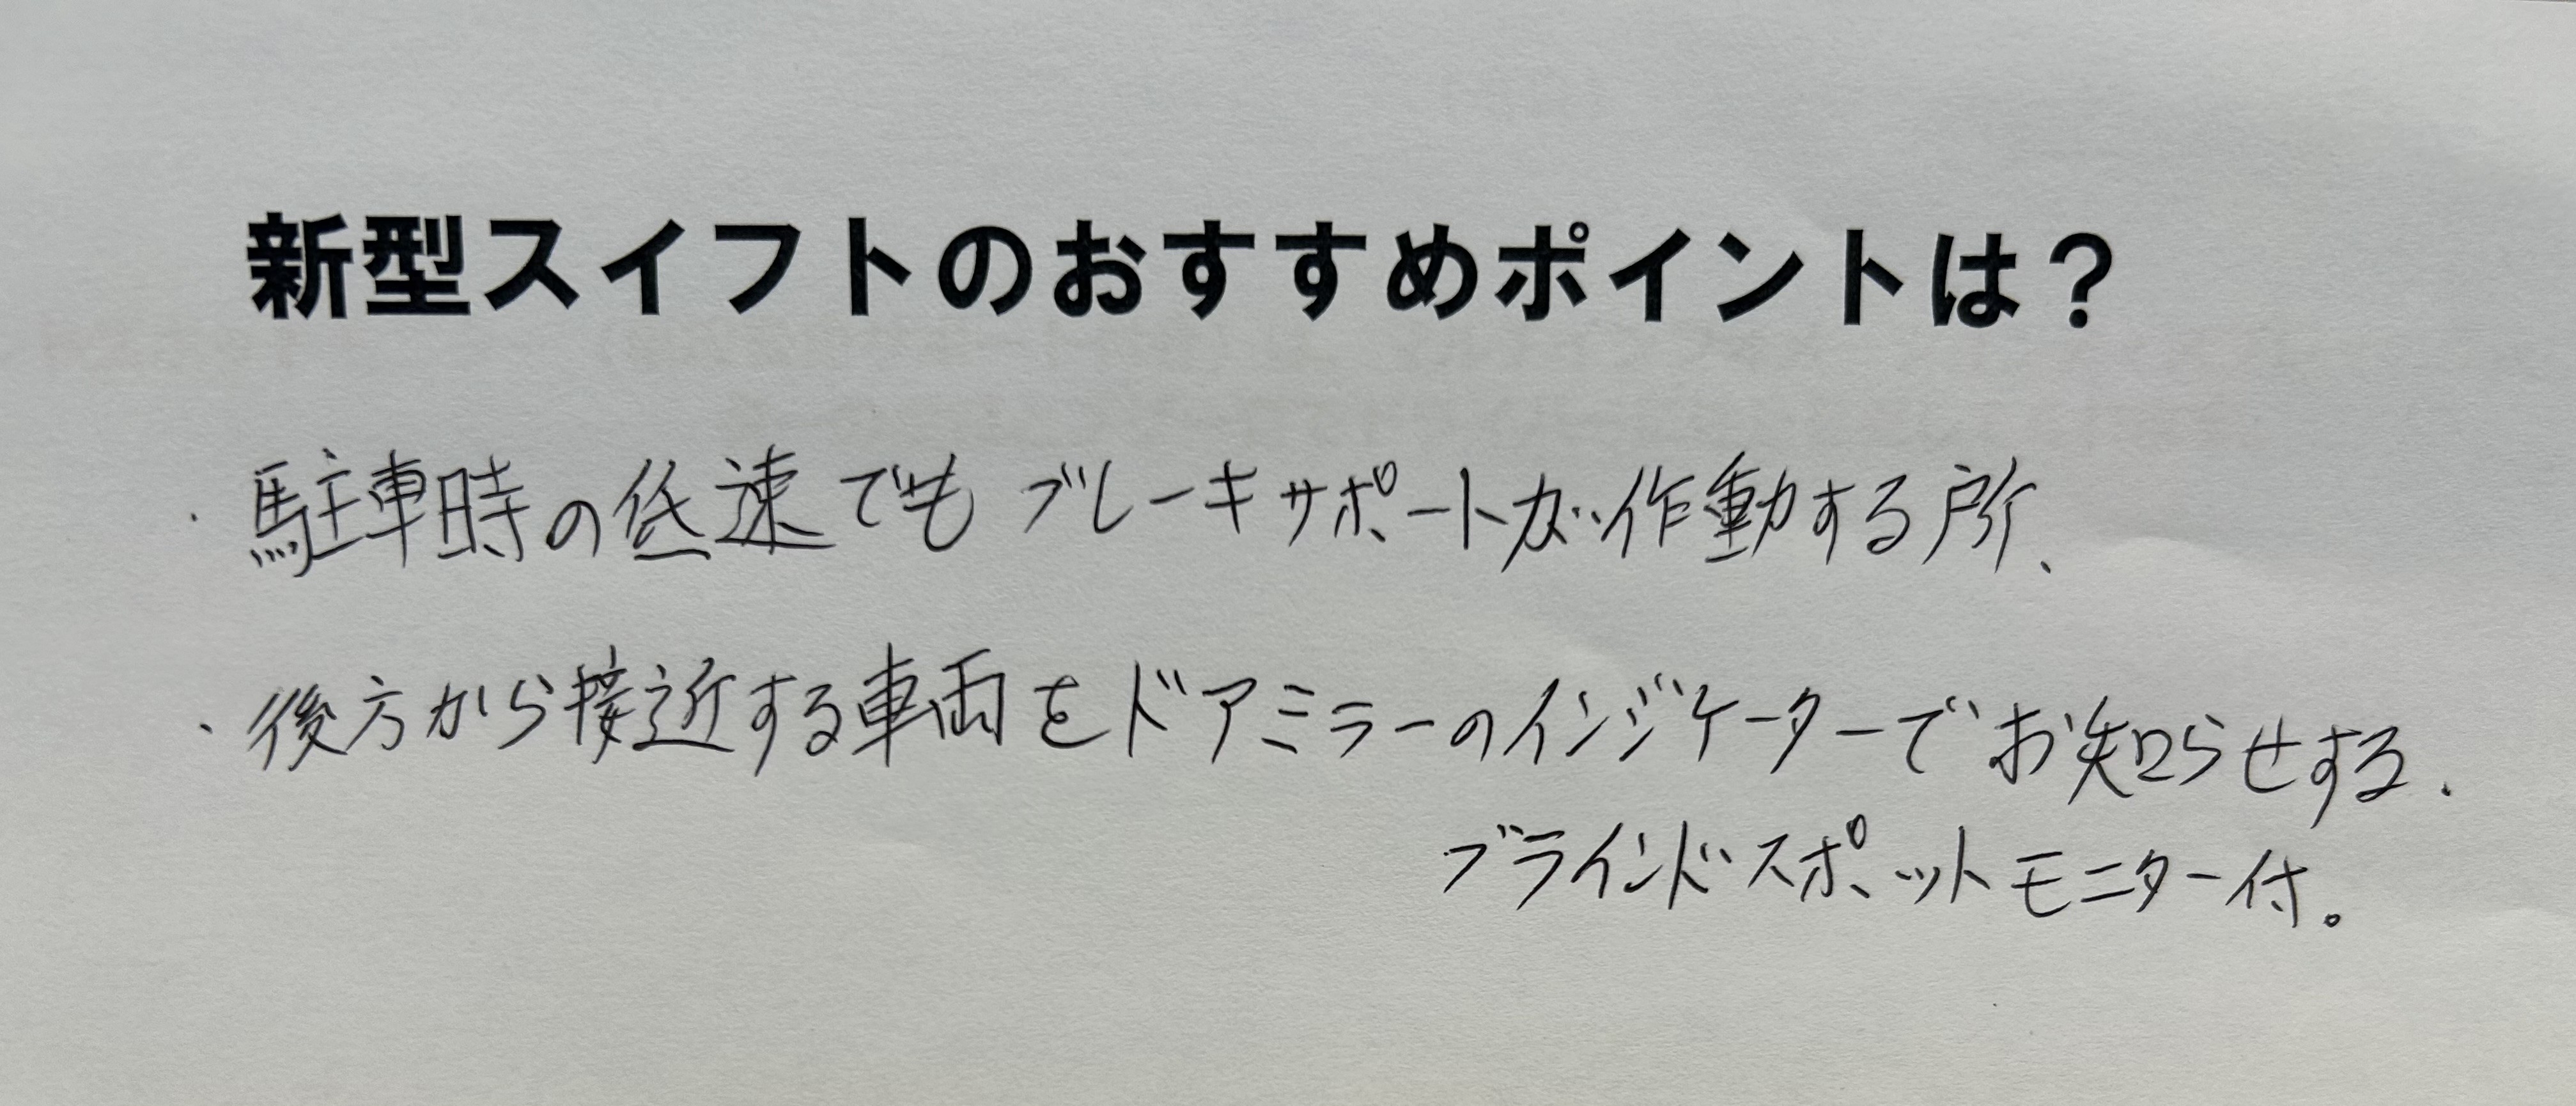 新型スイフトのおすすめポイントは？
・駐車時の低速でもブレーキサポートが作動する所、
・後方から接近する車両をドアミラーのインジケーターでお知らせする、
ブラインドスポットモニター付。